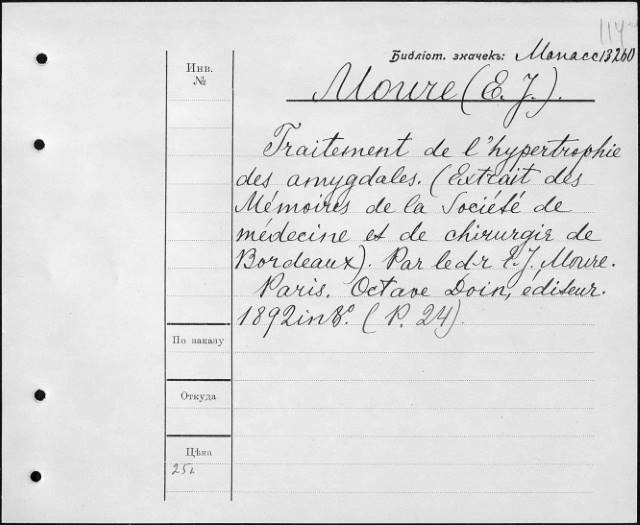 114
Библiот. значекъ: Monacc 13260
Инв.
№
Moure (E. J.).
Traitement de l'hypertrophie
des amygdales. (Extrait des
Mémoires de la Société de
médecine et de chirurgie de
Bordeaux). Par le d-r E. J. Moure.
Paris. Octave Doin, éditeur.
1892 in 8°. (P. 24).
По заказу
Откуда
Цѣна
25